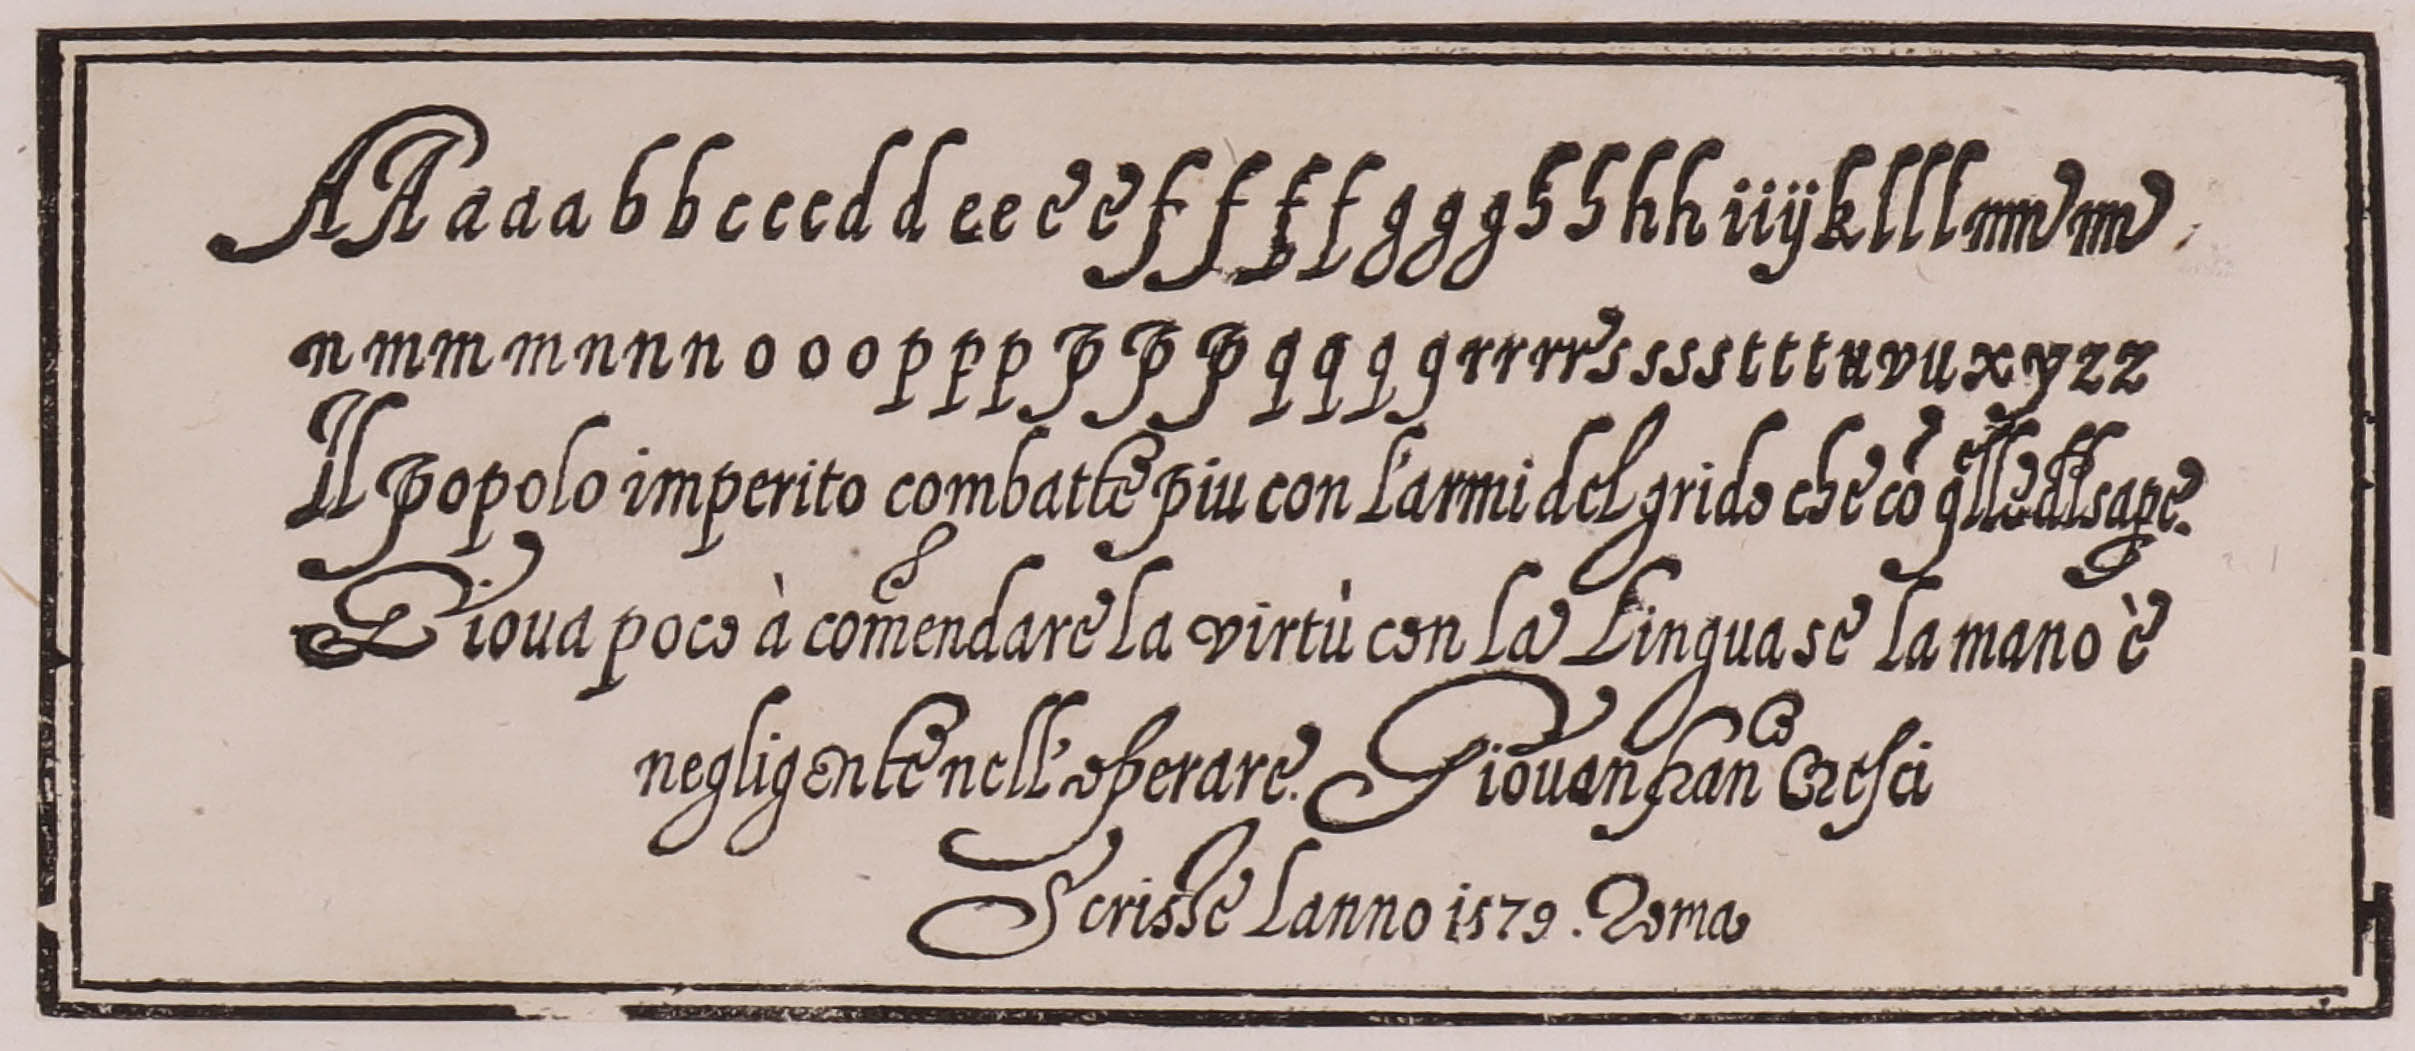 A A a a a b b c c c d d e e e e f f f f g g g h h h h i i ij k l l l m m
n m m m n n n o o o p p p p p p q q q q r r r r s s s s t t t u v u x y z z
Il popolo imperito combatte piu con l'armi del grido che cõ q̃lle dl sape.
Gioua poco à com̃endare la virtù con la lingua se la mano è
negligente nell'operare. Giouanfran.co Cresci
Scrisse Lanno 1579. Roma